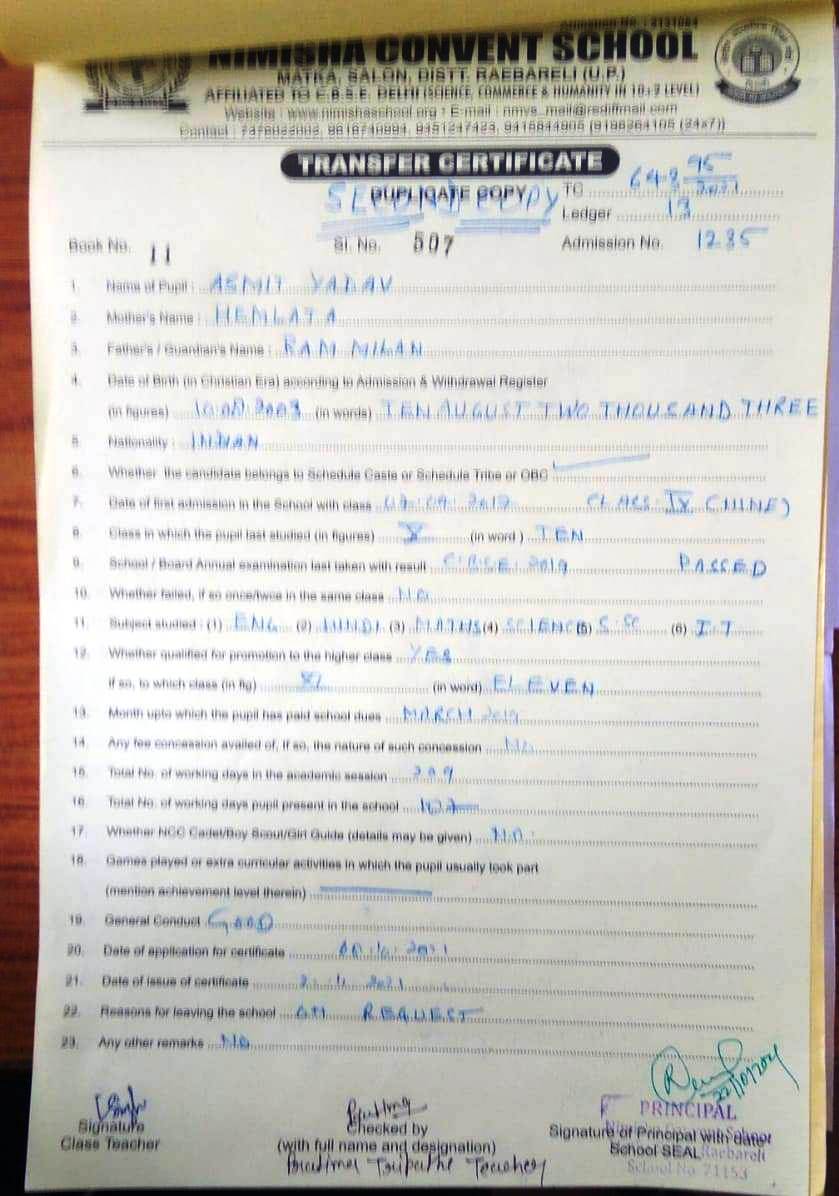 NIMISHA CONVENT SCHOOL
MATKA, SALON, DISTT. RAEBARELI (U.P.)
AFFILIATED TO C.B.S.E. DELHI (SCIENCE, COMMERCE & HUMANITY IN 10+2 LEVEL)
Website : www.nimishaschool.org : E-mail : nmvs_mail@rediffmail.com
TRANSFER CERTIFICATE
DUPLICATE COPY TC 95
SECOND COPY 2021
Ledger 13
Book No. 11 Sl. No. 507 Admission No. 1235
1. Name of Pupil : ASMIT YADAV
2. Mother's Name : HEMLATA
3. Father's / Guardian's Name : RAM MILAN
4. Date of Birth (in Christian Era) according to Admission & Withdrawal Register
(in figures) 10.08.2003 (in words) TEN AUGUST TWO THOUSAND THREE
5. Nationality : INDIAN
6. Whether the candidate belongs to Schedule Caste or Schedule Tribe or OBC
7. Date of first admission in the School with class CLASS IX (NINE)
8. Class in which the pupil last studied (in figures) X (in word) TEN
9. School / Board Annual examination last taken with result C.B.S.E. 2019 PASSED
10. Whether failed, if so once/twice in the same class NO
11. Subject studied : (1) ENG (2) HINDI (3) MATHS (4) SCIENCE (5) S.SC (6) I.T
12. Whether qualified for promotion to the higher class YES
if so, to which class (in fig) XI (in word) ELEVEN
13. Month upto which the pupil has paid school dues MARCH 2019
14. Any fee concession availed of, If so, the nature of such concession NO
15. Total No. of working days in the academic session 209
16. Total No. of working days pupil present in the school
17. Whether NCC Cadet/Boy Scout/Girl Guide (details may be given) NO
18. Games played or extra curricular activities in which the pupil usually took part
(mention achievement level therein)
19. General Conduct GOOD
20. Date of application for certificate 2021
21. Date of issue of certificate 2021
22. Reasons for leaving the school ON REQUEST
23. Any other remarks NO
PRINCIPAL
Signature
Class Teacher
Checked by
(with full name and designation)
Tripathi Teacher
Signature of Principal with date
School SEAL Raebareli
School No 71153